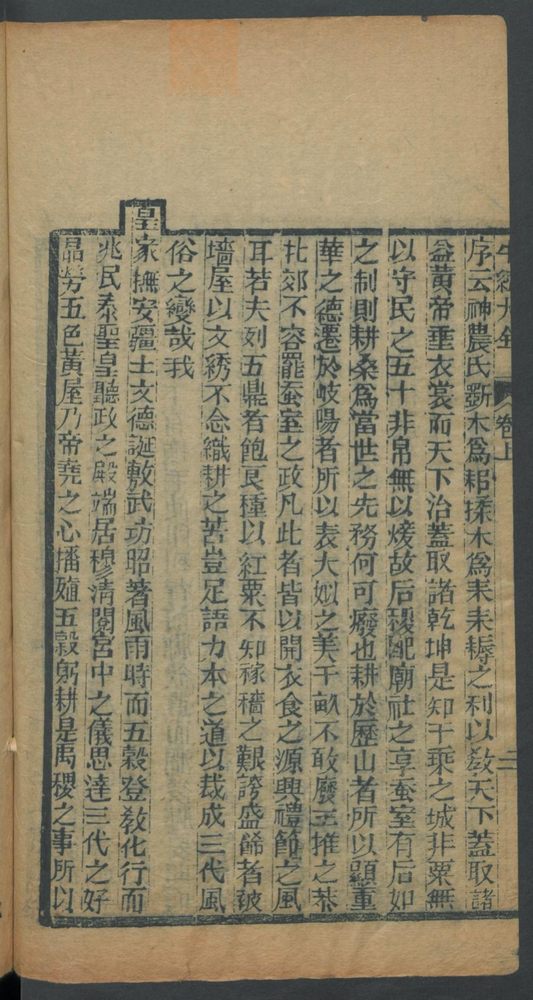 牛經大全 卷上 二
序云神農氏斲木爲耜揉木爲耒耒耨之利以敎天下蓋取諸
益黃帝垂衣裳而天下治蓋取諸乾坤是知千乘之城非粟無
以守民之五十非帛無以煖故后稷配廟社之享蚕室有后如
之制則耕桑爲當世之先務何可廢也耕於歷山者所以顯重
華之德遷於岐陽者所以表大姒之美千畝不敢廢三推之恭
北郊不容罷蚕室之政凡此者皆以開衣食之源興禮節之風
耳若夫列五鼎者飽艮種以紅粟不知稼穡之艱誇盛餙者被
墻屋以文綉不念織耕之苦豈足語力本之道以裁成三代風
俗之變哉我
皇家撫安疆土文德誕敷武功昭著風雨時而五穀登敎化行而
兆民泰聖皇聽政之殿端居穆清閱宮中之儀思達三代之好
晶勞五色黃屋乃帝堯之心播殖五穀躬耕是禹稷之事所以